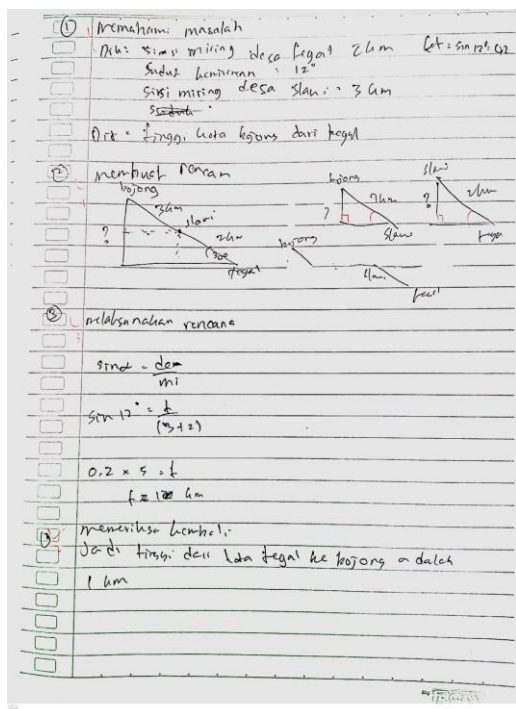 ① memahami masalah
Dik: sisi miring desa tegal 2 km ket: sin 12° = 0,2
Sudut kemiringan = 12°
Sisi miring desa slawi = 3 km
Dit = tinggi kota bojong dari tegal
② membuat rencana
bojong
3 km
slawi
?
2 km
tegal
bojong
?
3 km
slawi
slawi
?
2 km
tegal
bojong
slawi
tegal
③ melaksanakan rencana
sin α = de
mi
sin 12° = t
(3+2)
0.2 x 5 = t
t = 1 km
memeriksa kembali:
Jadi tinggi dari kota tegal ke bojong adalah
1 km